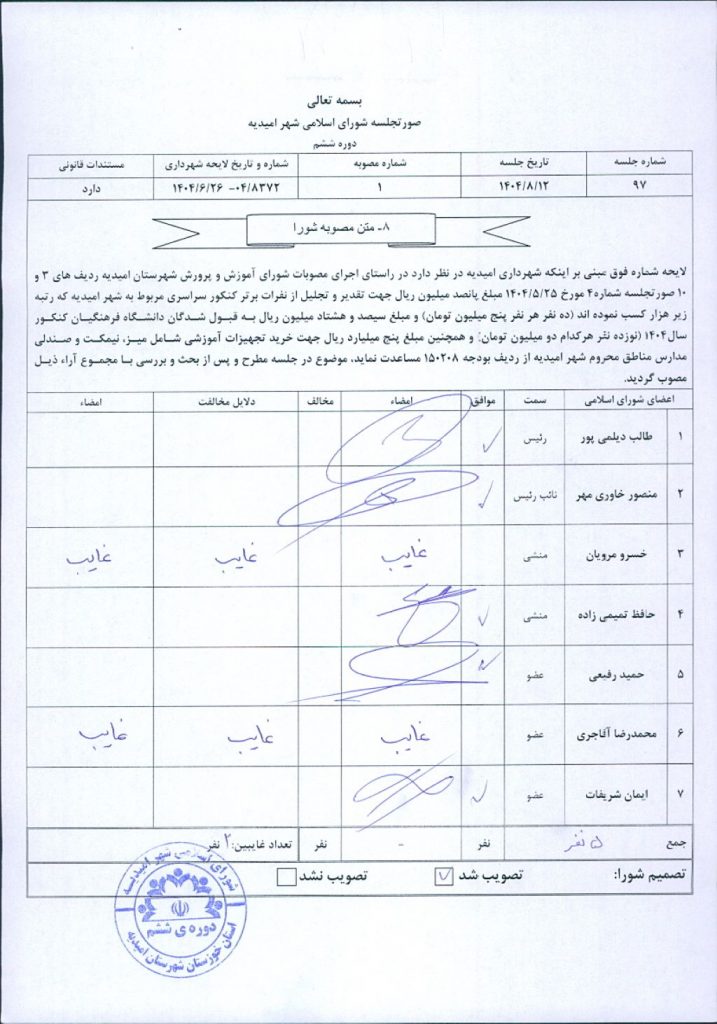 بسمه تعالی
صورتجلسه شورای اسلامی شهر امیدیه
دوره ششم
شماره جلسه تاریخ جلسه شماره مصوبه شماره و تاریخ لایحه شهرداری مستندات قانونی
۹۷ ۱۴۰۴/۸/۱۲ ۱ ۰۴/۸۳۷۲- ۱۴۰۴/۶/۲۶ دارد
۸- متن مصوبه شورا
لایحه شماره فوق مبنی بر اینکه شهرداری امیدیه در نظر دارد در راستای اجرای مصوبات شورای آموزش و پرورش شهرستان امیدیه ردیف های ۳ و
۱۰ صورتجلسه شماره۴ مورخ ۱۴۰۴/۵/۲۵ مبلغ پانصد میلیون ریال جهت تقدیر و تجلیل از نفرات برتر کنکور سراسری مربوط به شهر امیدیه که رتبه
زیر هزار کسب نموده اند (ده نفر هر نفر پنج میلیون تومان) و مبلغ سیصد و هشتاد میلیون ریال به قبول شدگان دانشگاه فرهنگیان کنکور
سال۱۴۰۴ (نوزده نفر هرکدام دو میلیون تومان) و همچنین مبلغ پنج میلیارد ریال جهت خرید تجهیزات آموزشی شامل میز، نیمکت و صندلی
مدارس مناطق محروم شهر امیدیه از ردیف بودجه ۱۵۰۲۰۸ مساعدت نماید، موضوع در جلسه مطرح و پس از بحث و بررسی با مجموع آراء ذیل
مصوب گردید.
اعضای شورای اسلامی سمت موافق امضاء مخالف دلایل مخالفت امضاء
۱ طالب دیلمی پور رئیس
۲ منصور خاوری مهر نائب رئیس
۳ خسرو مرویان منشی غایب غایب غایب
۴ حافظ تمیمی زاده منشی
۵ حمید رفیعی عضو
۶ محمدرضا آقاجری عضو غایب غایب غایب
۷ ایمان شریفات عضو
جمع ۵ نفر نفر - نفر تعداد غایبین: ۲ نفر
تصمیم شورا: تصویب شد تصویب نشد
شورای اسلامی شهر امیدیه
دوره ی ششم
استان خوزستان شهرستان امیدیه